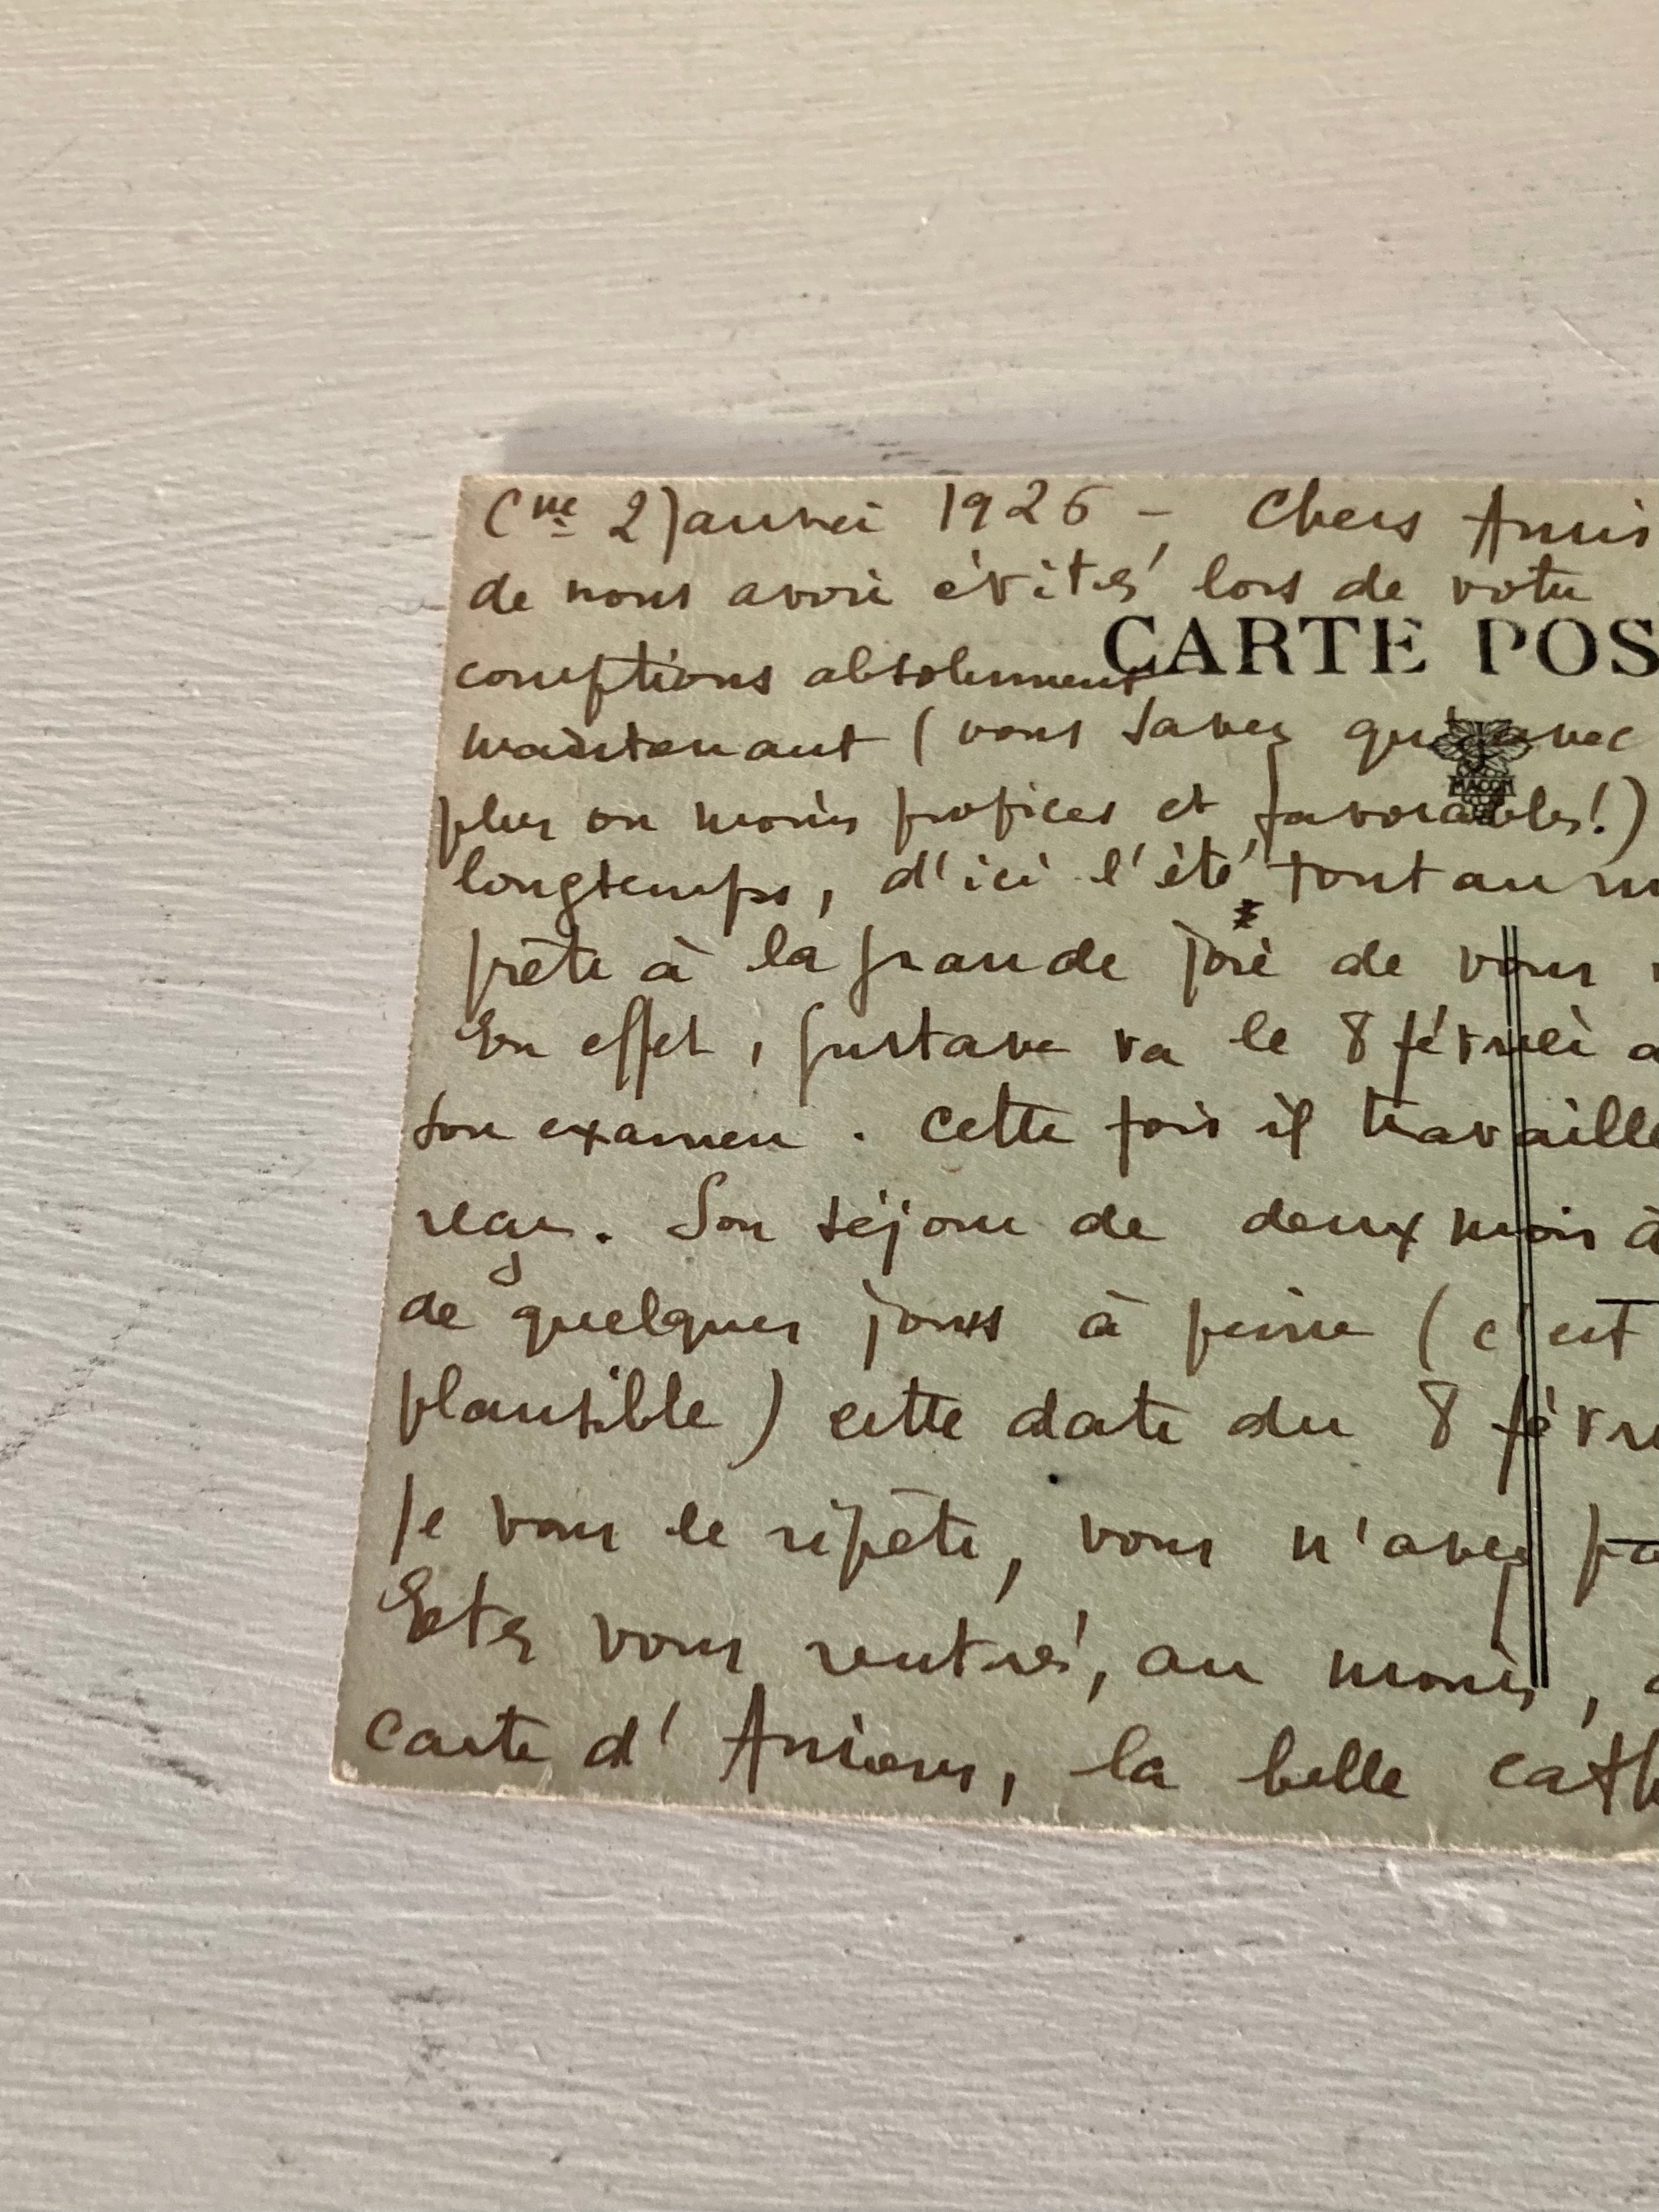 Cne 2 Janvier 1926 - Chers Amis
de nous avoir évités lors de votre
CARTE POS
comptions absolument
maintenant (vous savez qu'avec
MACON
plus ou moins propices et favorables!)
longtemps, d'ici l'été tout au m
prête à la grande joie de vous
En effet, Gustave va le 8 février a
son examen. Cette fois il travaille
reçu. Son séjour de deux mois à
de quelques jours à peine (c'est
plausible) cette date du 8 févri
Je vous le répète, vous n'avez pa
Etes vous rentrés, au moins,
carte d'Amiens, la belle cath